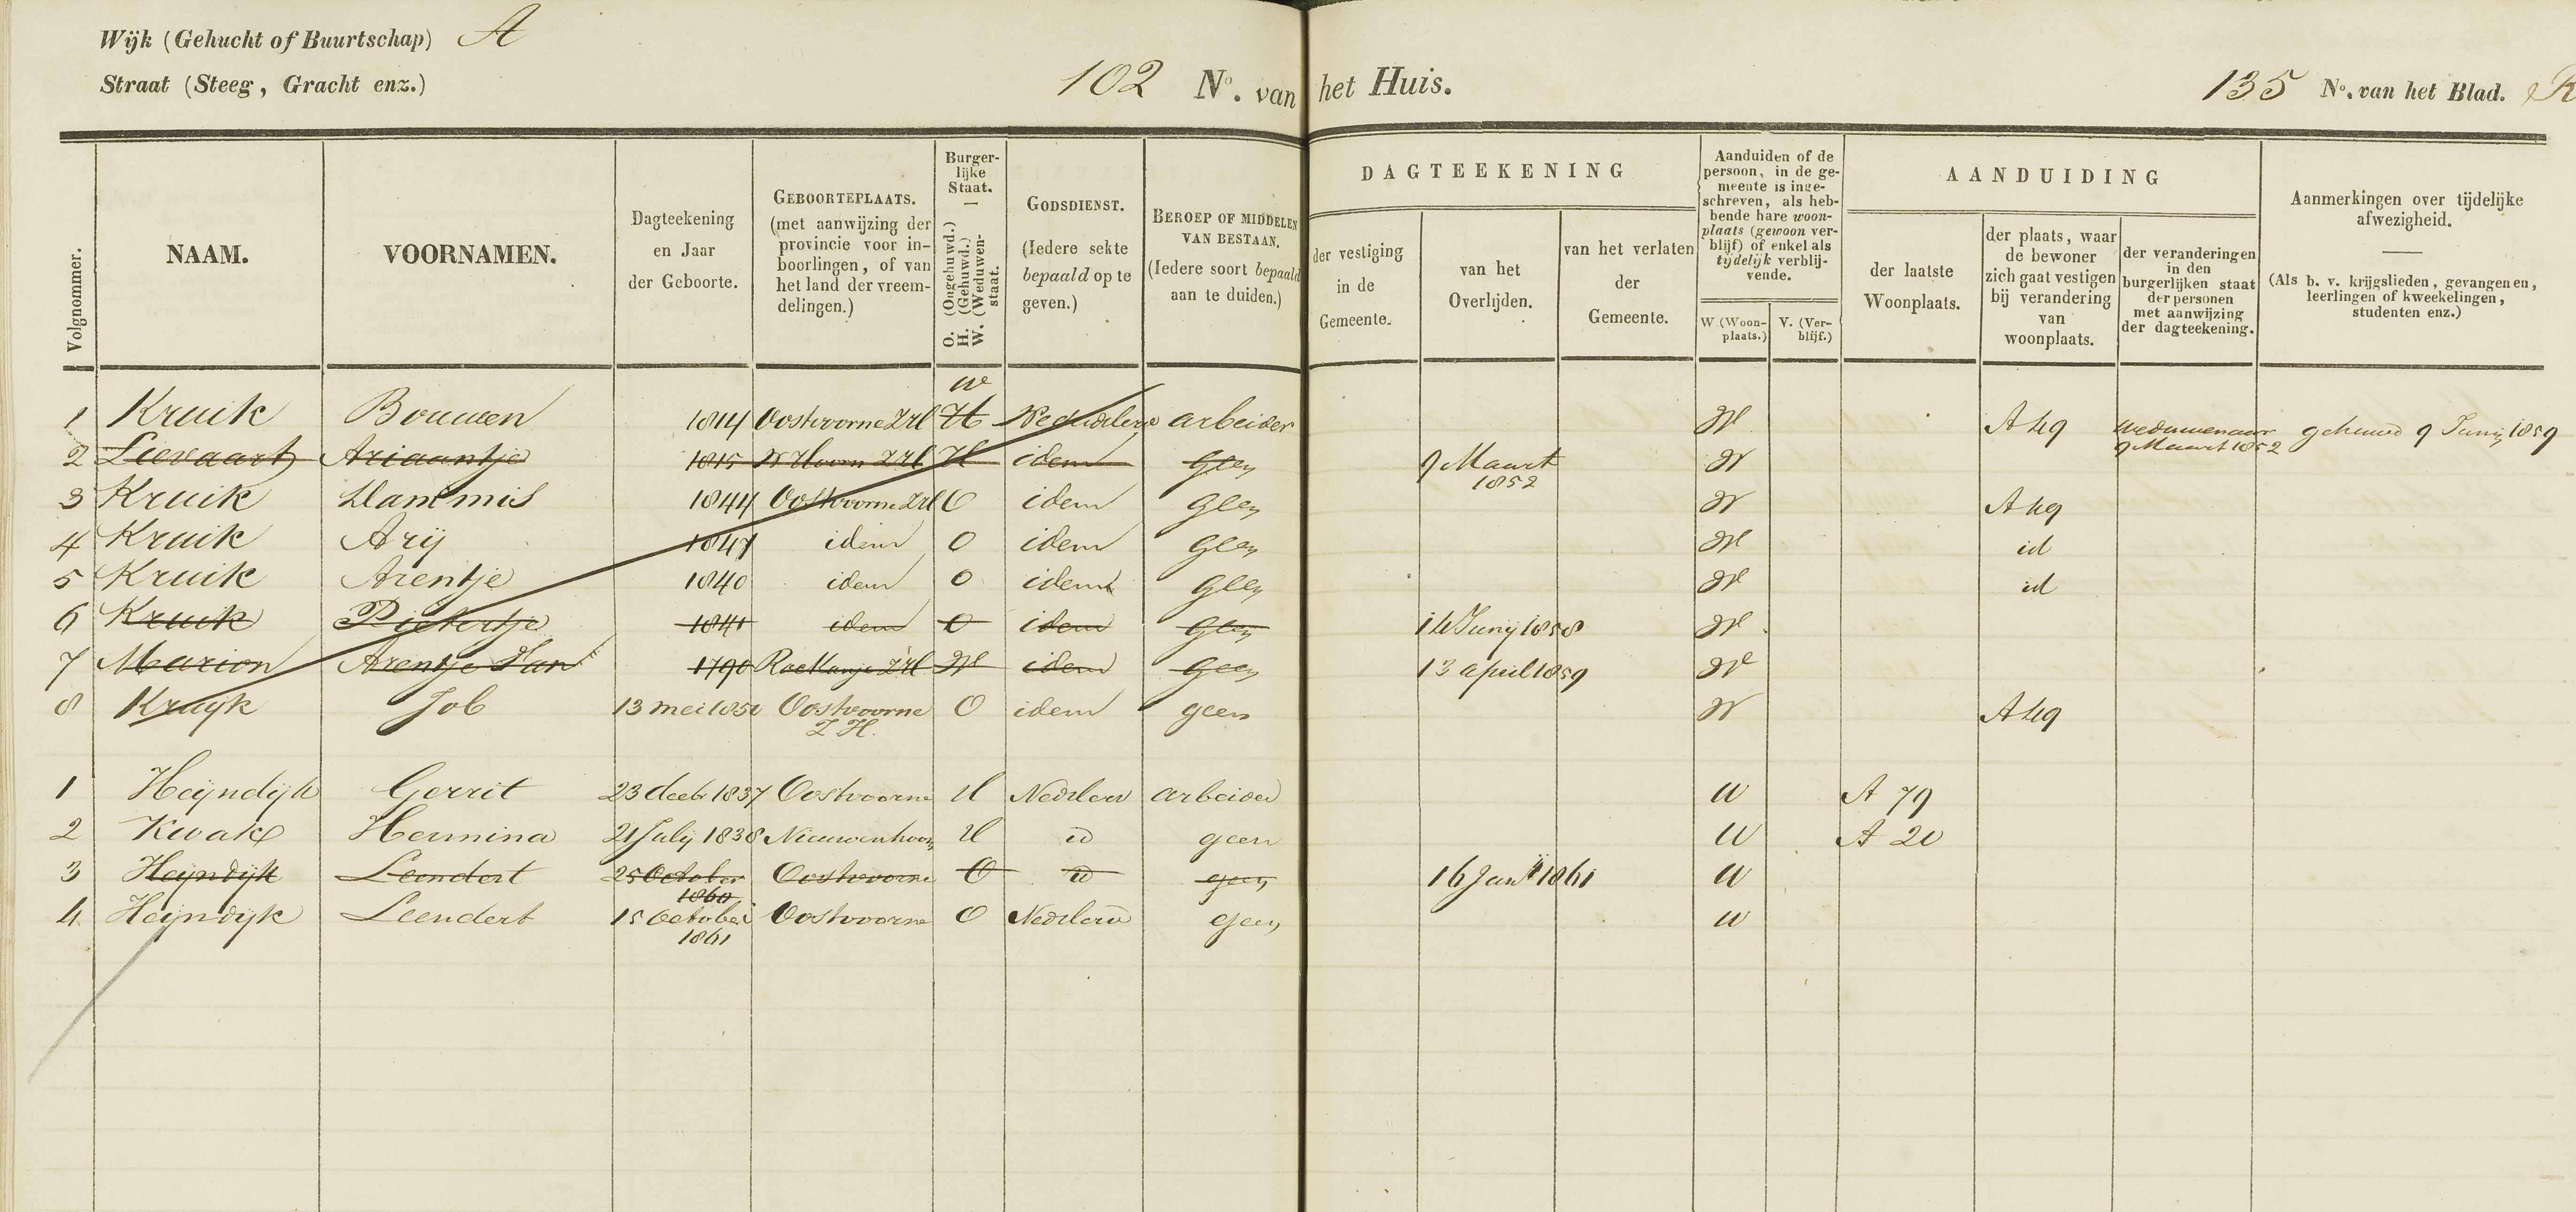 Wijk (Gehucht of Buurtschap) A
Straat (Steeg, Gracht enz.)
102 No. van het Huis.
135 No. van het Blad.
Volgnommer.
NAAM.
VOORNAMEN.
Dagteekening en Jaar der Geboorte.
GEBOORTEPLAATS. (met aanwijzing der provincie voor in-boorlingen, of van het land der vreem-delingen.)
Burger-lijke Staat. O. (Ongehuwd.) H. (Gehuwd.) W. (Weduwen-staat.
GODSDIENST. (Iedere sekte bepaald op te geven.)
BEROEP OF MIDDELEN VAN BESTAAN. (Iedere soort bepaald aan te duiden.)
DAGTEEKENING
der vestiging in de Gemeente.
van het Overlijden.
van het verlaten der Gemeente.
Aanduiden of de persoon, in de ge-meente is inge-schreven, als heb-bende hare woon-plaats (gewoon ver-blijf) of enkel als tijdelijk verblij-vende.
W (Woon-plaats.)
V. (Ver-blijf.)
AANDUIDING
der laatste Woonplaats.
der plaats, waar de bewoner zich gaat vestigen bij verandering van woonplaats.
der veranderingen in den burgerlijken staat der personen met aanwijzing der dagteekening.
Aanmerkingen over tijdelijke afwezigheid.
(Als b. v. krijgslieden, gevangenen, leerlingen of kweekelingen, studenten enz.)
W
1 Kruik Bouwen 1814 Oostvoorne Zrl H Nederlerv arbeider W weduwenaar gehuwd 9 Junij 1859
9 Maart 1852
2 Lievaart Ariaantje 1815 N Hoorn Zrl H idem geen 9 Maart W
1852
3 Kruik 1844 Oostvoorne Zrl O idem geen W
4 Kruik Arij idem O idem geen W id
5 Kruik Arentje 1840 idem O idem geen W id
6 Kruik Pietertje 1841 idem O idem geen Junij 1858 W
7 Marion Arentje 1790 Rockanje Zrl W idem geen 13 april 1859 W
8 Kruijk Job 13 mei Oostvoorne O idem geen W
Z H.
1 Heijndijk Gerrit 23 decb 1837 Oostvoorne H Nederlerv arbeider W A 79
2 Kwak Hermina 21 July 1838 Nieuwenhoorn H id geen W A 20
3 Heijndijk Leendert 25 October Oostvoorne O id geen 16 Janij 1861 W
1860
4 Heijndijk Leendert 15 October Oostvoorne O Nederlerv geen W
1861